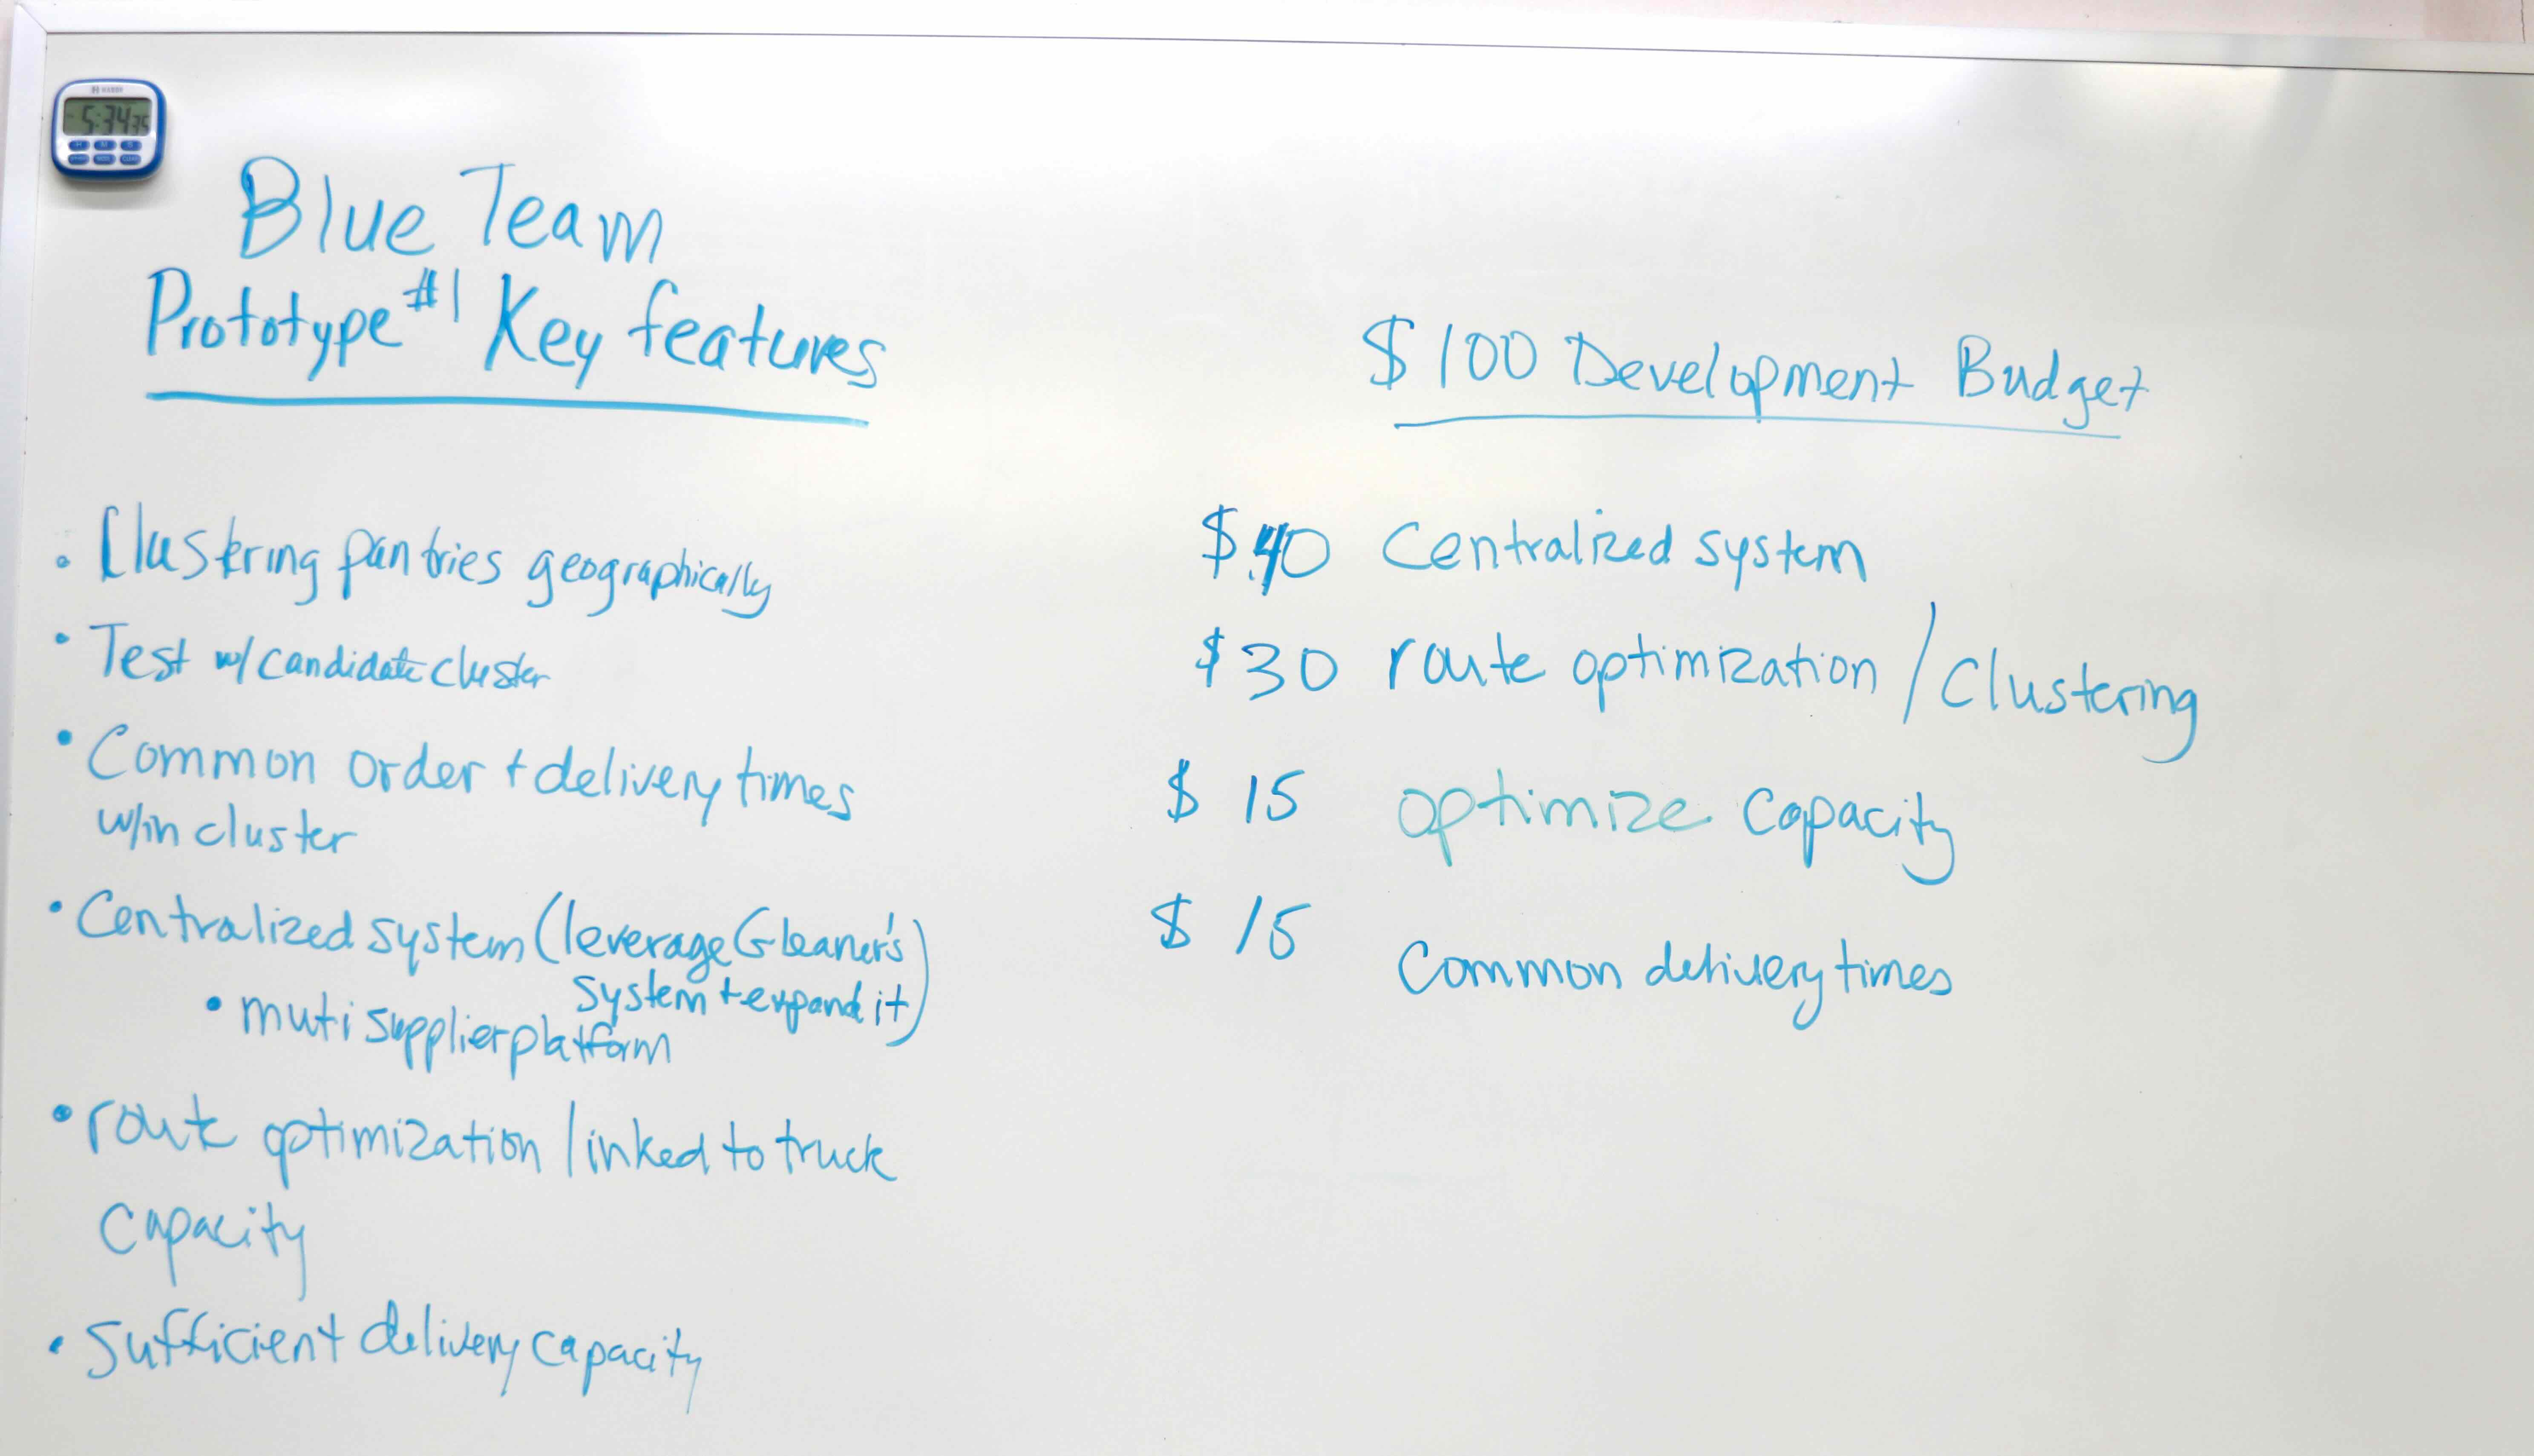 5:34 35
Blue Team
Prototype #1 Key features
• Clustering pantries geographically
• Test w/ candidate cluster
• Common order + delivery times
w/in cluster
• Centralized system (leverage Gleaner's
system + expand it)
• muti supplier platform
• route optimization / linked to truck
capacity
• Sufficient delivery capacity
$100 Development Budget
$40 Centralized system
$30 route optimization / Clustering
$ 15 optimize capacity
$ 15 Common delivery times